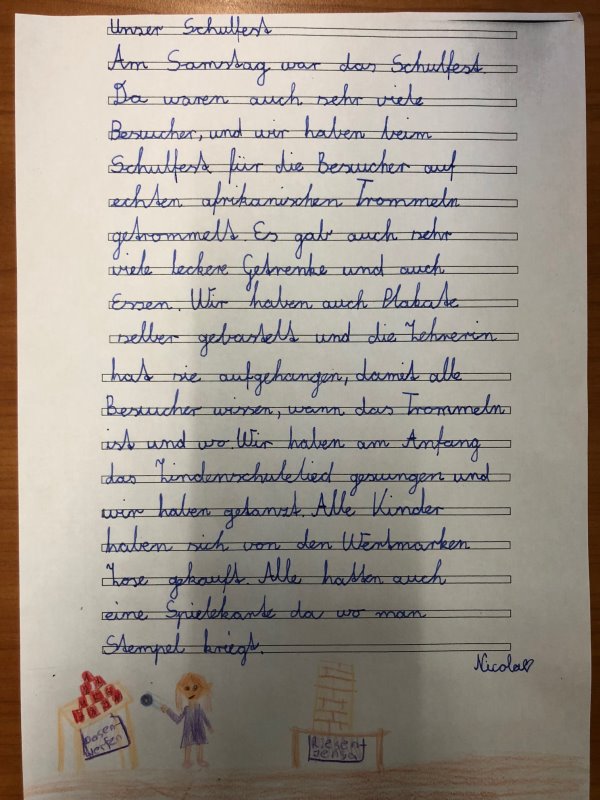 Unser Schulfest
Am Samstag war das Schulfest.
Da waren auch sehr viele
Besucher, und wir haben beim
Schulfest für die Besucher auf
echten afrikanischen Trommeln
getrommelt. Es gab auch sehr
viele leckere Getrenke und auch
Essen. Wir haben auch Plakate
selber gebastelt und die Lehrerin
hat sie aufgehangen, damit alle
Besucher wissen, wann das Trommeln
ist und wo. Wir haben am Anfang
das Lindenschulelied gesungen und
wir haben getanzt. Alle Kinder
haben sich von den Wertmarken
Lose gekauft. Alle hatten auch
eine Spielekarte da wo man
Stempel kriegt.
Nicola
Dosen-
werfen
Riesen-
jenga